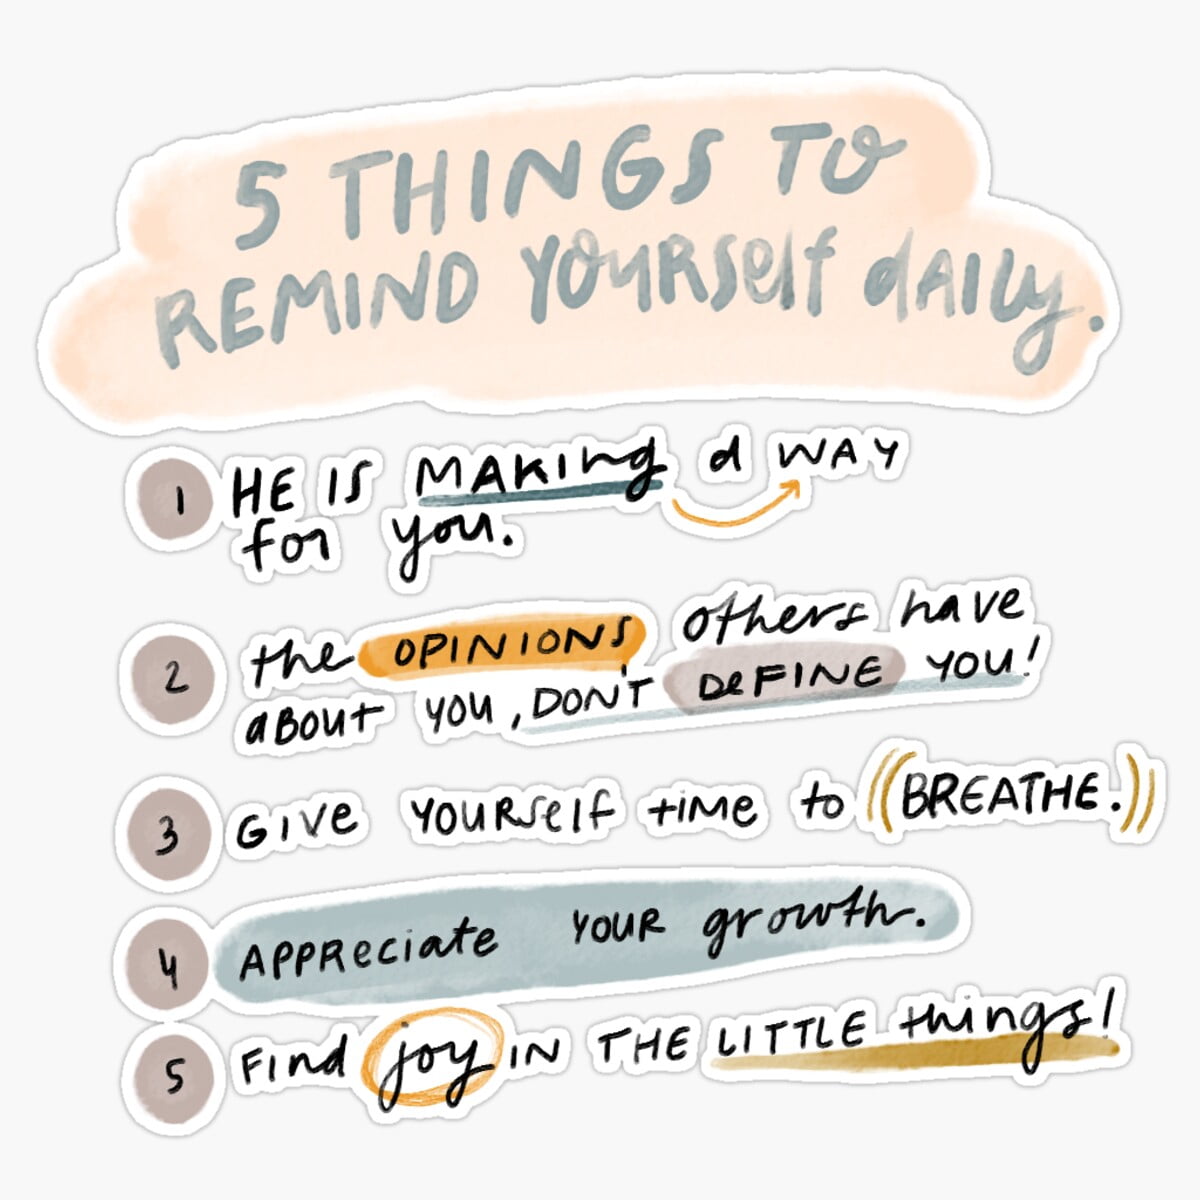 5 THINGS TO
REMIND YOURSelf dAILy.
1 HE IS MAKINg a WAY
for you.
2 the OPINIONS others have
aBOUt YOU, DON'T DeFINE YOU!
3 GIVe YOURSelf tiMe to ((BREATHE.))
4 APPReciate YOUR growth.
5 FInd joy IN THE LITTLE things!